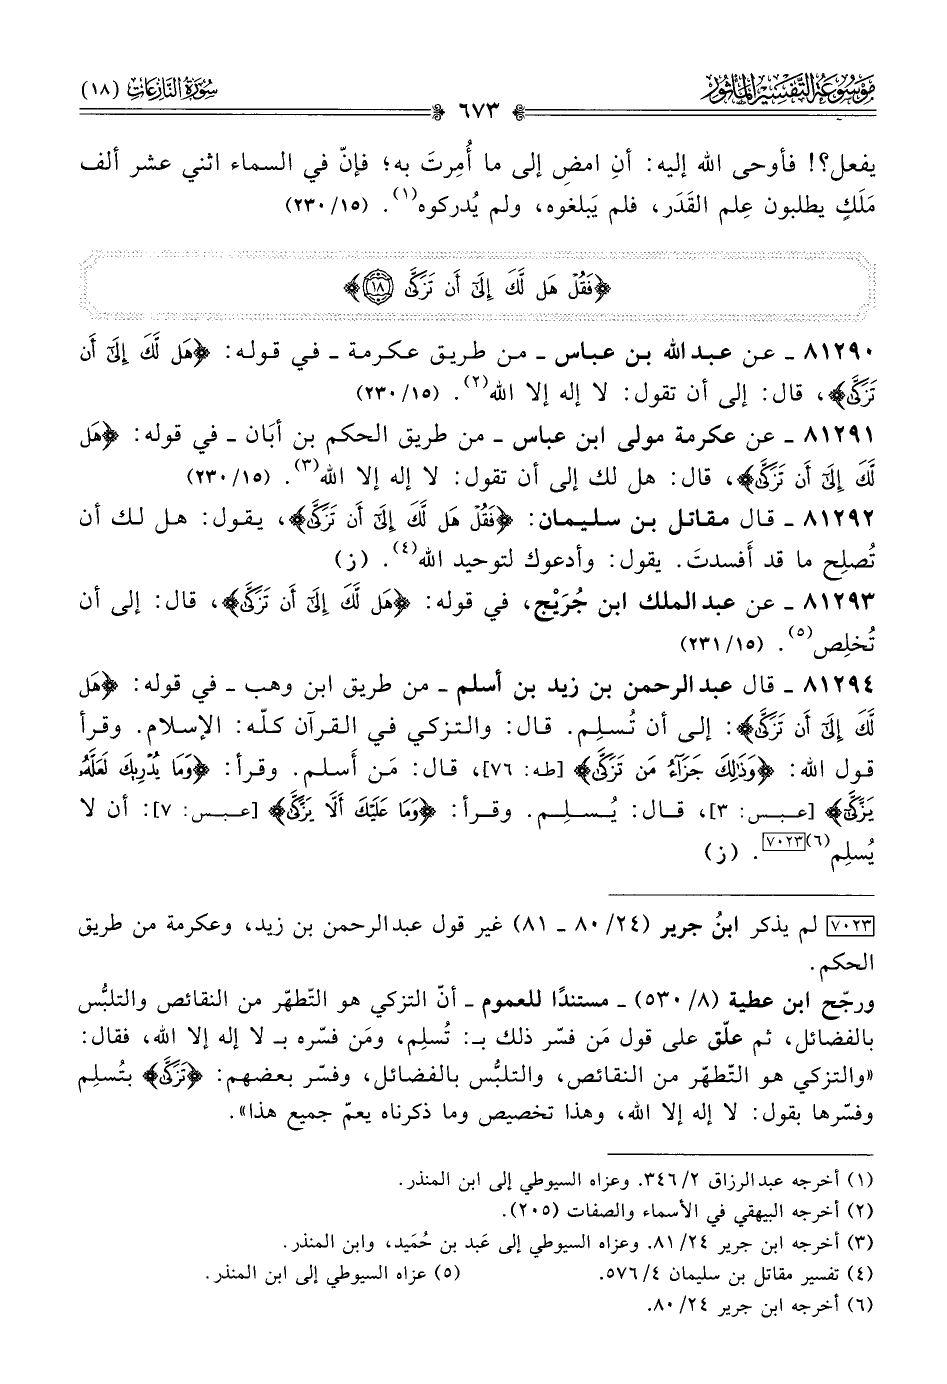 موسوعة التفسير المأثور
سورة النازعات (١٨)
٦٧٣
يفعل؟! فأوحى الله إليه: أنِ امضِ إلى ما أُمِرتَ به؛ فإنّ في السماء اثني عشر ألف
مَلَكٍ يطلبون عِلم القَدَر، فلم يَبلغوه، ولم يُدركوه(١). (١٥/٢٣٠)
﴿فَقُلْ هَل لَّكَ إِلَىٰٓ أَن تَزَكَّىٰ ۝١٨﴾
٨١٢٩٠ ـ عن عبد الله بن عباس ـ من طريق عكرمة ـ في قوله: ﴿هَل لَّكَ إِلَىٰٓ أَن
تَزَكَّىٰ﴾، قال: إلى أن تقول: لا إله إلا الله(٢). (١٥/٢٣٠)
٨١٢٩١ ـ عن عكرمة مولى ابن عباس ـ من طريق الحكم بن أبَان ـ في قوله: ﴿هَل
لَّكَ إِلَىٰٓ أَن تَزَكَّىٰ﴾، قال: هل لك إلى أن تقول: لا إله إلا الله(٣). (١٥/٢٣٠)
٨١٢٩٢ ـ قال مقاتل بن سليمان: ﴿فَقُلْ هَل لَّكَ إِلَىٰٓ أَن تَزَكَّىٰ﴾، يقول: هل لك أن
تُصلِح ما قد أَفسدتَ. يقول: وأدعوك لتوحيد الله(٤). (ز)
٨١٢٩٣ ـ عن عبد الملك ابن جُرَيْج، في قوله: ﴿هَل لَّكَ إِلَىٰٓ أَن تَزَكَّىٰ﴾، قال: إلى أن
تُخلِص(٥). (١٥/٢٣١)
٨١٢٩٤ ـ قال عبد الرحمن بن زيد بن أسلم ـ من طريق ابن وهب ـ في قوله: ﴿هَل
لَّكَ إِلَىٰٓ أَن تَزَكَّىٰ﴾: إلى أن تُسلِم. قال: والتزكي في القرآن كلّه: الإسلام. وقرأ
قول الله: ﴿وَذَٰلِكَ جَزَآءُ مَن تَزَكَّىٰ﴾ [طه: ٧٦]، قال: مَن أَسلم. وقرأ: ﴿وَمَا يُدْرِيكَ لَعَلَّهُۥ
يَزَّكَّىٰٓ﴾ [عبس: ٣]، قال: يُسلِم. وقرأ: ﴿وَمَا عَلَيْكَ أَلَّا يَزَّكَّىٰ﴾ [عبس: ٧]: أن لا
يُسلِم(٦)[٧٠٢٣]. (ز)
[٧٠٢٣] لم يذكر ابنُ جرير (٢٤/٨٠ ـ ٨١) غير قول عبد الرحمن بن زيد، وعكرمة من طريق
الحكم.
ورجّح ابن عطية (٨/٥٣٠) ـ مستندًا للعموم ـ أنّ التزكي هو التّطهّر من النقائص والتلبُّس
بالفضائل، ثم علّق على قول مَن فسّر ذلك بـ: تُسلِم، ومَن فسّره بـ لا إله إلا الله، فقال:
«والتزكي هو التّطهّر من النقائص، والتلبُّس بالفضائل، وفسّر بعضهم: ﴿تَزَكَّىٰ﴾ بتُسلِم
وفسّرها بقول: لا إله إلا الله، وهذا تخصيص وما ذكرناه يعمّ جميع هذا».
(١) أخرجه عبد الرزاق ٢/٣٤٦. وعزاه السيوطي إلى ابن المنذر.
(٢) أخرجه البيهقي في الأسماء والصفات (٢٠٥).
(٣) أخرجه ابن جرير ٢٤/٨١. وعزاه السيوطي إلى عَبد بن حُمَيد، وابن المنذر.
(٤) تفسير مقاتل بن سليمان ٤/٥٧٦. (٥) عزاه السيوطي إلى ابن المنذر.
(٦) أخرجه ابن جرير ٢٤/٨٠.